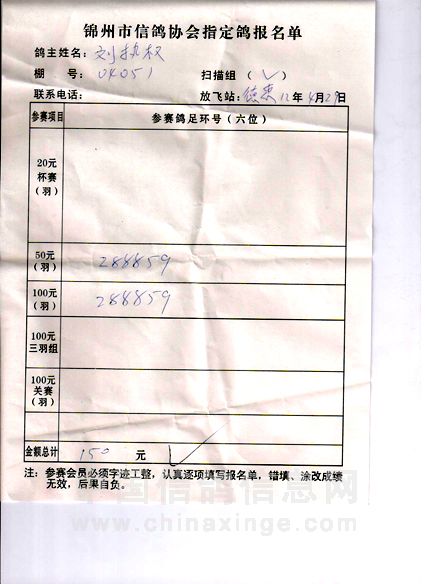 锦州市信鸽协会指定鸽报名单
鸽主姓名：刘执权
棚 号：04051 扫描组（√）
联系电话： 放飞站：德惠 12年 4月29日
参赛项目 参赛鸽足环号（六位）
20元
杯赛
（羽）
50元
（羽） 288859
100元
（羽） 288859
100元
三羽组
100元
关赛
（羽）
金额总计 150 元
注：参赛会员必须字迹工整，认真逐项填写报名单，错填、涂改成绩
无效，后果自负。
中国信鸽信息网
www.chinaxinge.com